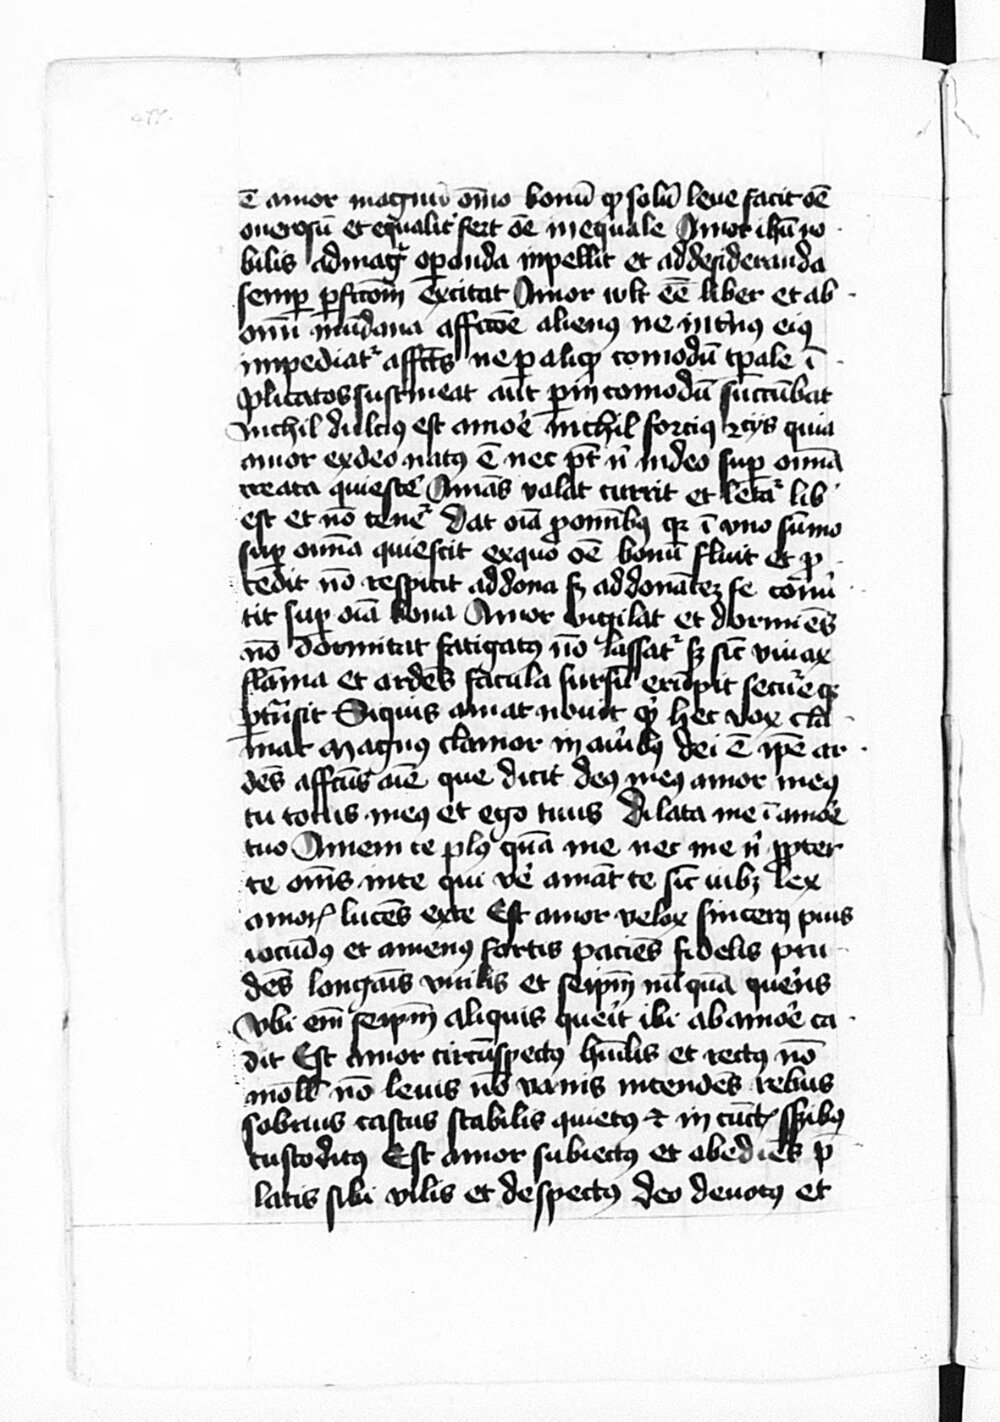 ē amor magnū om̄o bonū qď solū leue facit oē
onerosū et eq̄ualit' fert oē inequale Amor ihū no
bilis ad mag̃ oꝑanda inpellit et ad desideranda
semꝑ ꝑfctōra excitat Amor wlt eē liber et ab
omī mūdana affectōe alienꝰ ne int'nꝰ eiꝰ
impediat᷑ affctꝰ ne ꝑ aliqď comodū tꝑale ī
plicatos sustineat aut ꝑ incomodū succūbat
Nichil dulciꝰ est amor̄e nichil forciꝰ ꝛc̄ijs quia
amor ex deo natꝰ ē nec pt̄ n̄ in deo suꝑ om̄ia
creata quiescē Amās volat currit et letat᷑ lib'
est et nō tenet᷑ Dat oīa pro om̄ibꝰ et ī vno sūmo
suꝑ om̄ia quiescit ex quo oē bonū fluit et ꝓ
cedit nō respicit ad dona sꝫ ad donātē se cōu'
tit suꝑ oīa bona Amor vigilat et dormiēs
nō dormitat fatigatꝰ nō lassat᷑ sꝫ sic̄ viuax
flāma et ardēs facula sursū erūpit secur̄eqꝫ
ꝑtr̄nsit Siquis amat nouit qď hec vox cla
mat Magnꝰ clamor in aur̄ibꝰ dei ē ip̄e ar
dēs affctūs aīe que dicit deꝰ meꝰ amor meꝰ
tu totus meꝰ et ego tuus Dilata me ī amor̄e
tuo Amem te plꝰ quā me nec me n̄ ꝓpter
te om̄s in te qui ver̄ amāt te sic̄ iubꝫ lex
amorꝭ lucēs ex te Est amor velox sincerꝰ pius
iocūdꝰ et amenꝰ fortis paciēs fidelis pru
dēs longaīs virilis et seip̄m nūquā quer̄ēs
Vbi em̄ seip̄m aliquis quer̄it ibi ab amor̄e ca
dit Est amor circūspectꝰ hūilis et rectꝰ nō
moll' nō leuis nō vanis intendēs rebus
sobrius castus stabilis quietꝰ ⁊ in cūctꝭ sēsibꝰ
custoditꝰ Est amor subiectꝰ et obediēs p̄
latis sibi vilis et despectꝰ deo deuotꝰ et